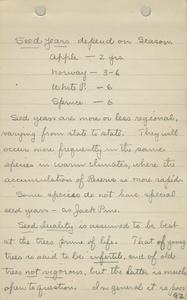 Seed years depend on Season
Apple — 2 yrs
Norway — 3-6
White P. — 6
Spruce — 6
Seed years are more or less regional,
varying from state to state. They will
occur more frequently in the same
species in warm climates, where the
accumulation of Reserve is more rapid.
Some species do not have special
seed years - as Jack Pine.
Seed quality is assumed to be best
at the trees prime of life. That of young
trees is said to be infertile, and of old
trees not vigorous, but the latter is much
open to question. In general it is poor